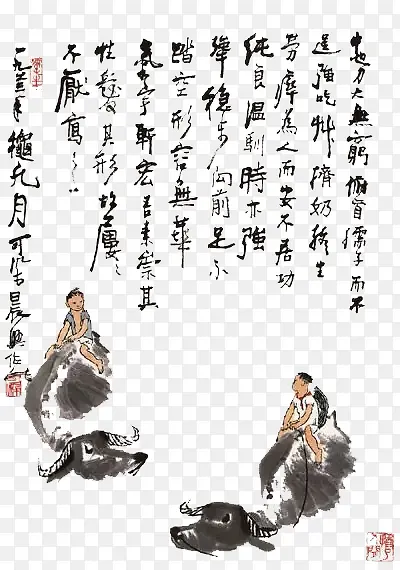 牛也力大無窮俯首孺子而不
逞強吃艸擠奶終生
勞瘁為人而安不居功
純良溫馴時亦強
犟穩步向前足不
踏空形容無華
氣宇軒宏吾素崇其
性愛其形故屢〻
不厭寫之
九月可染晨興作